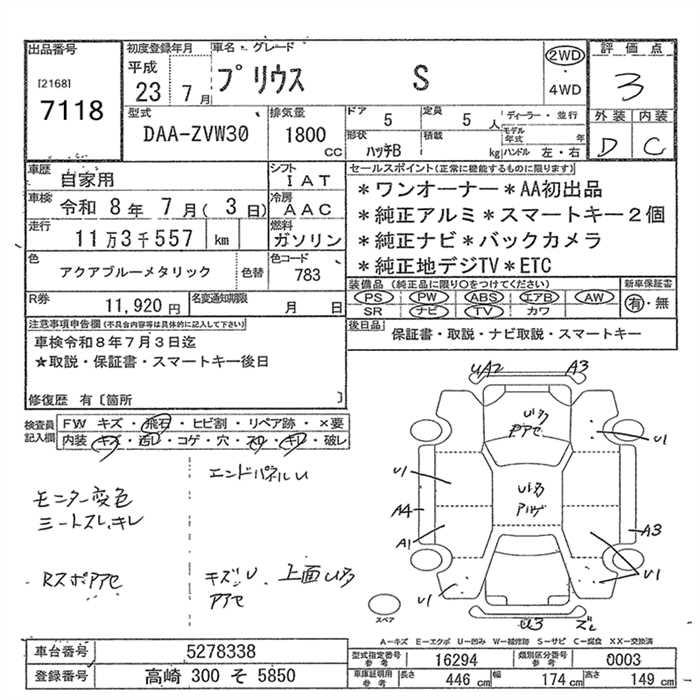 出品番号
[2168]
7118
初度登録年月
平成
23 7月
車名・グレード
プリウス S
2WD
・
4WD
評価点
3
外装 内装
D C
型式
DAA-ZVW30
排気量
1800
CC
ドア
5
定員
5 人
形状
ハッチB
積載
kg
ディーラー・並行
モデル年式 年
ハンドル 左・右
車歴
自家用
シフト
IAT
車検
令和 8年 7月( 3日)
冷房
AAC
走行
11万3千557 km
燃料
ガソリン
色
アクアブルーメタリック
色替
色コード
783
R券
11,920円
名変通知期限
月 日
セールスポイント(正常に機能するものに限ります)
*ワンオーナー*AA初出品
*純正アルミ*スマートキー2個
*純正ナビ*バックカメラ
*純正地デジTV*ETC
装備品 (純正品に限り○をつけてください)
PS PW ABS エアB AW
SR ナビ TV カワ
新車保証書
有・無
後日品
保証書・取説・ナビ取説・スマートキー
注意事項申告欄(不具合内容等は具体的に記入して下さい)
車検令和8年7月3日迄
☆取説・保証書・スマートキー後日
修復歴 有〔箇所 〕
検査員
記入欄
FW キズ・飛石・ヒビ割・リペア跡・×要
内装 キズ・汚レ・コゲ・穴・スレ・キレ・破レ
エンドパネルU
モニター変色
シートスレ、キレ
Rスポアセ
キズ U 上面 U3
アセ
UA2 A3
U3
アセ
U1
U1
U3
A4
A3
A1
U1
U1
U3
スペア
A-キズ E-エクボ U-凹み W-補修跡 S-サビ C-腐食 XX-交換済
車台番号
5278338
登録番号
高崎 300 そ 5850
型式指定番号
参考
16294
類別区分番号
参考
0003
車庫証明用
参考
長さ
446 cm
幅
174 cm
高さ
149 cm